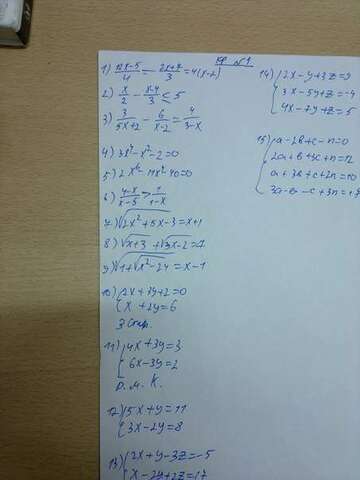 КР №1
1) \frac{12x-5}{4} - \frac{2x+7}{3} = 4(x-2)
2) \frac{x}{2} - \frac{x-4}{3} ≤ 5
3) \frac{3}{5x+2} - \frac{6}{x-2} = \frac{4}{3-x}
4) 3x⁴-x²-2=0
5)
6) \frac{4-x}{x-5} > \frac{1}{1-x}
7) √(2x²+5x-3)=x+1
8)
9) √(1+√(x²-24))=x-1
10) 2x+3y+2=0
{x+2y=6
3 спр.
11) {4x+3y=3
6x-3y=2
D. м. К.
12) {5x+y=11
3x-2y=8
13) {2x+y-3z=-5
x-2y+2z=17
14) {2x-y+3z=9
3x-5y+z=-4
4x-7y+z=5
15) {a-2b+c-n=0
2a+b+3c+n=12
a+3b+c+2n=10
3a-b-c+3n=